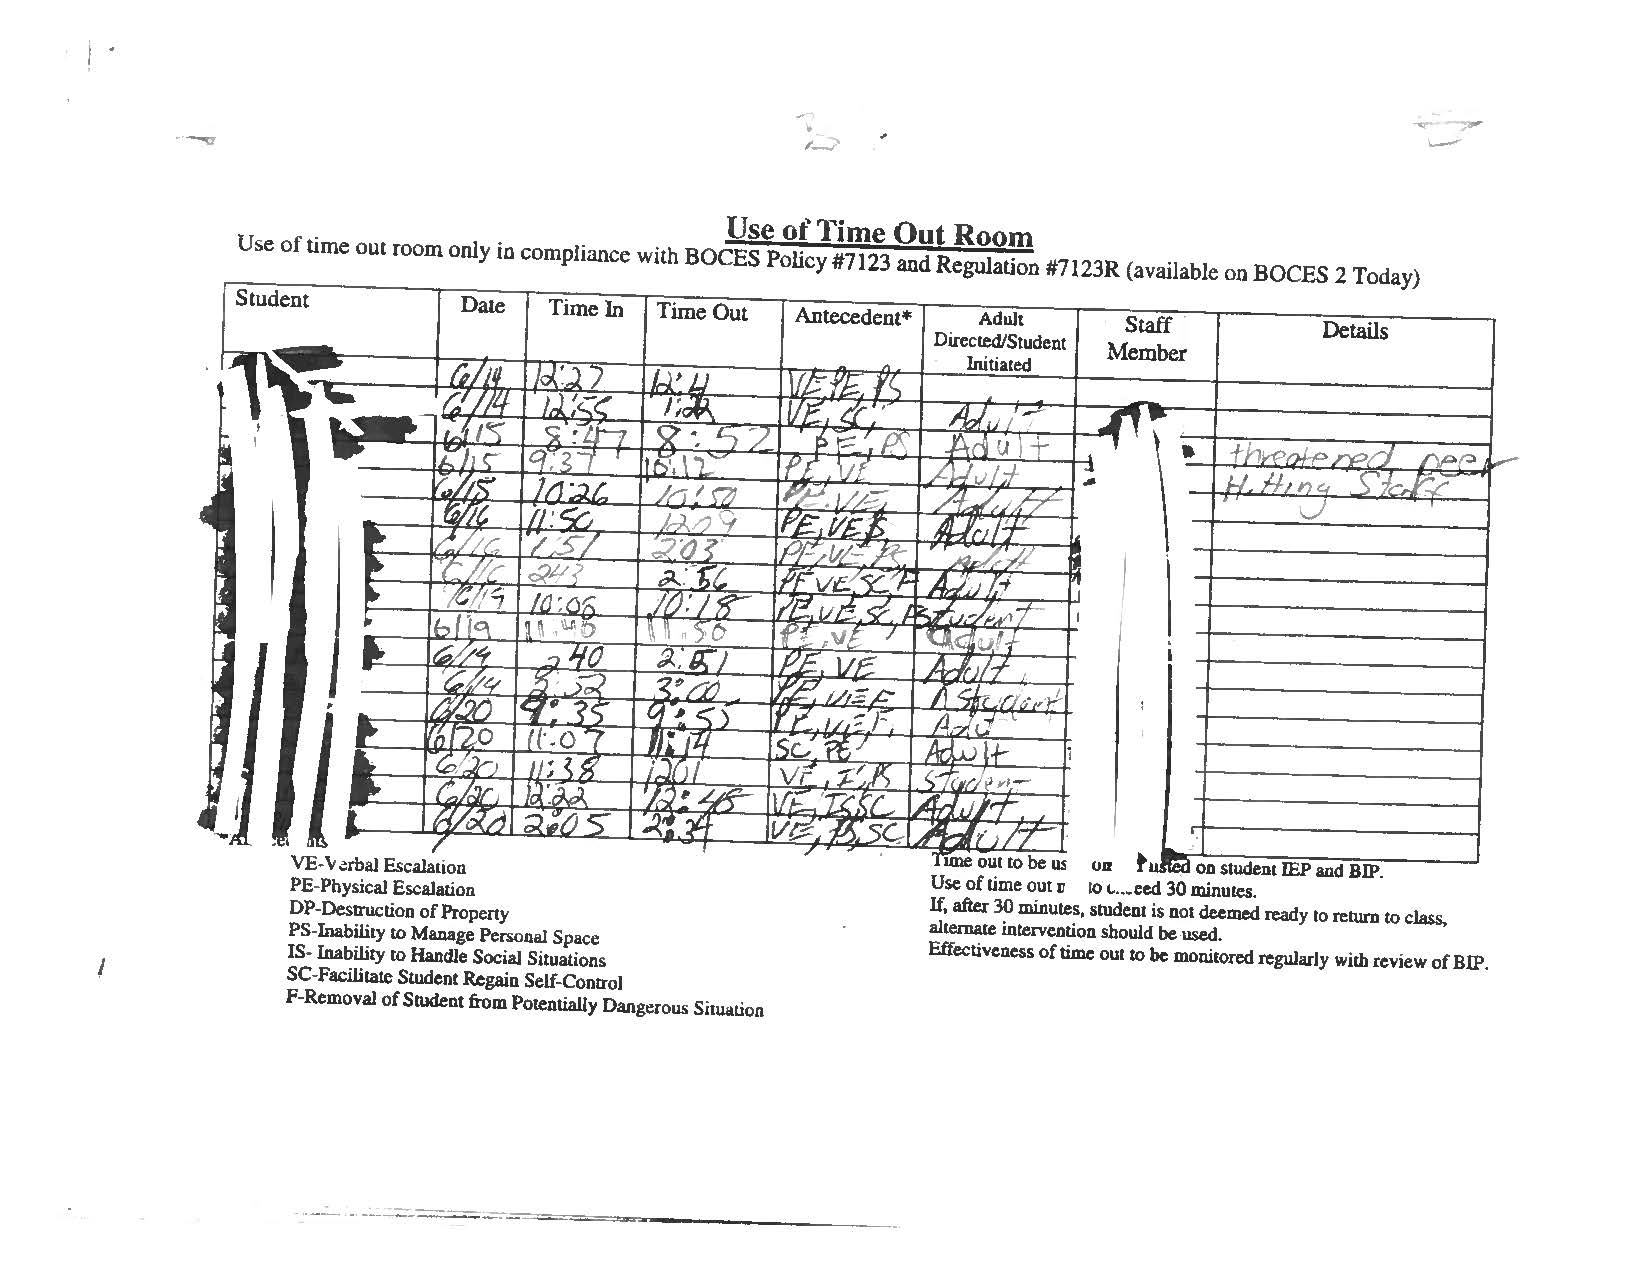 Use of Time Out Room
Use of time out room only in compliance with BOCES Policy #7123 and Regulation #7123R (available on BOCES 2 Today)
Student Date Time In Time Out Antecedent* Adult Directed/Student Initiated Staff Member Details
6/14 12:27 VE, PE, PS
6/14 12:55 1:22 VE, SC, Adult
6/15 8:47 8:52 PE, PS Adult
6/15 9:37 10:12 PE, VE Adult threatened peer
6/15 10:26 10:50 PE, VE, Adult Hitting Staff
6/16 11:50 1209 PE, VE Adult
6/16 1:51 2:03 PE, VE Adult
6/16 243 2:56 PE VE SC F Adult
6/19 10:06 10:18 PE, VE, SC, PS Student
6/19 11:40 11:50 PE, VE adult
6/19 2 40 2:51 PE, VE Adult
6/19 2:52 3:00 PE, VE F Student
6/20 9:35 9:55 PE, VE, F,
6/20 11:07 11:14 SC, PE Adult
6/20 11:38 1201 VE, Student
6/20 12:22 12:45 VE, IS SC Adult
6/20 2:05 2:34 VE, PS, SC Adult
VE-Verbal Escalation
PE-Physical Escalation
DP-Destruction of Property
PS-Inability to Manage Personal Space
IS- Inability to Handle Social Situations
SC-Facilitate Student Regain Self-Control
F-Removal of Student from Potentially Dangerous Situation
Time out to be us on student IEP and BIP.
Use of time out 30 minutes.
If, after 30 minutes, student is not deemed ready to return to class,
alternate intervention should be used.
Effectiveness of time out to be monitored regularly with review of BIP.